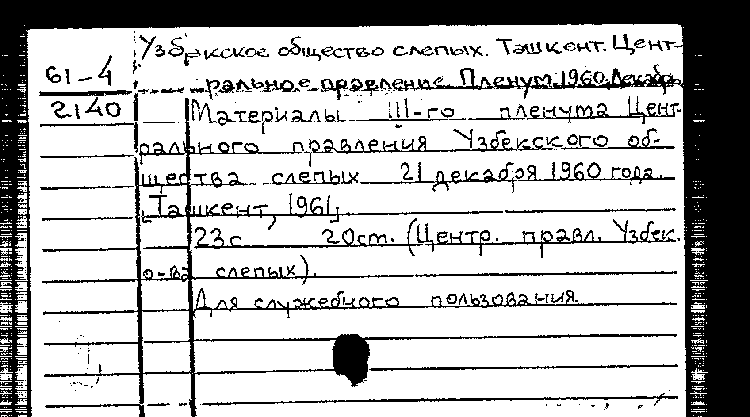 Узбекское общество слепых. Ташкент. Цент-
61-4 ральное правление. Пленум. 1960, Декабрь
2140 Материалы III-го пленума Цент-
рального правления Узбекского об-
щества слепых 21 декабря 1960 года.
[Ташкент, 1961]
23с 20см. (Центр. правл. Узбек.
о-ва слепых).
Для служебного пользования